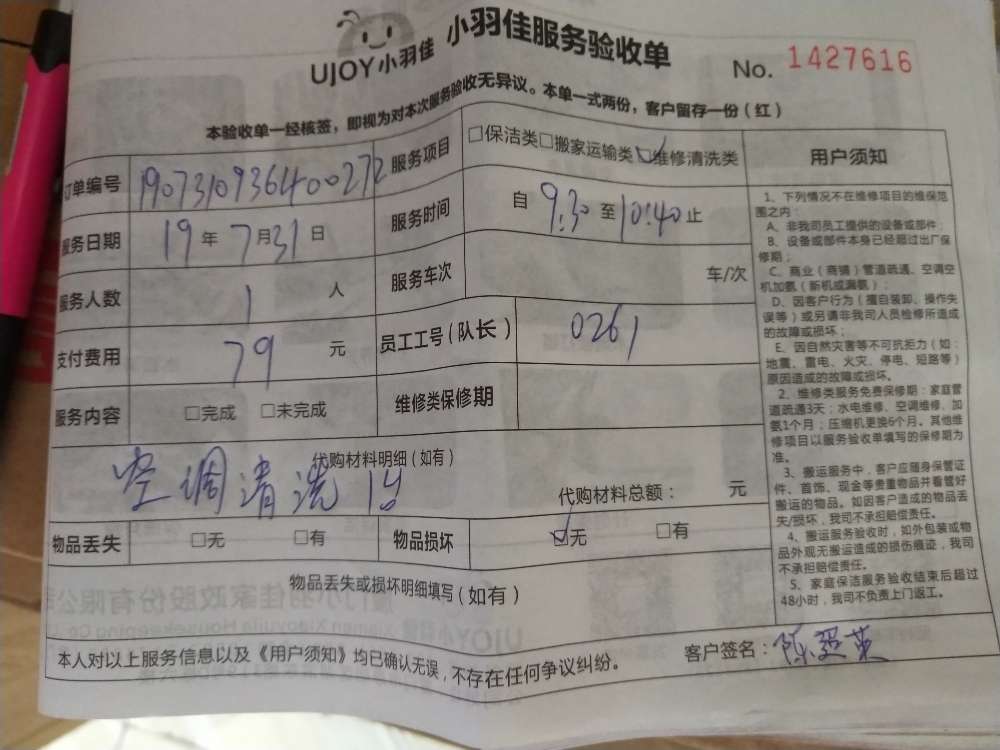 UJOY小羽佳 小羽佳服务验收单 No. 1427616
本验收单一经核签，即视为对本次服务验收无异议。本单一式两份，客户留存一份（红）
订单编号 190731093640027 服务项目 □保洁类□搬家运输类☑维修清洗类
服务日期 19年7月31日 服务时间 自9:30至10:40止
服务人数 1 人 服务车次 车/次
支付费用 79 元 员工工号(队长) 0261
服务内容 □完成 □未完成 维修类保修期
代购材料明细(如有)
空调清洗1台
代购材料总额： 元
物品丢失 □无 □有 物品损坏 ☑无 □有
物品丢失或损坏明细填写(如有)
本人对以上服务信息以及《用户须知》均已确认无误，不存在任何争议纠纷。 客户签名：陈
用户须知
1、下列情况不在维修项目的维保范
围之内：
A、非我司员工提供的设备或部件；
B、设备或部件本身已经超过出厂保
修期；
C、商业（商铺）管道疏通、空调空
机加氨（新机或漏氨）；
D、因客户行为（擅自装卸、操作失
误等）或另请非我司人员检修所造成
的故障或损坏；
E、因自然灾害等不可抗拒力（如：
地震、雷电、火灾、停电、短路等）
原因造成的故障或损坏。
2、维修类服务免费保修期：家庭管
道疏通3天；水电维修、空调维修、加
氨1个月；压缩机更换6个月。其他维
修项目以服务验收单填写的保修期为
准。
3、搬运服务中，客户应随身保管证
件、首饰、现金等贵重物品并看管好
搬运的物品。如因客户造成的物品丢
失/损坏，我司不承担赔偿责任。
4、搬运服务验收时，如外包装或物
品外观无搬运造成的损伤痕迹，我司
不承担赔偿责任。
5、家庭保洁服务验收结束后超过
48小时，我司不负责上门返工。